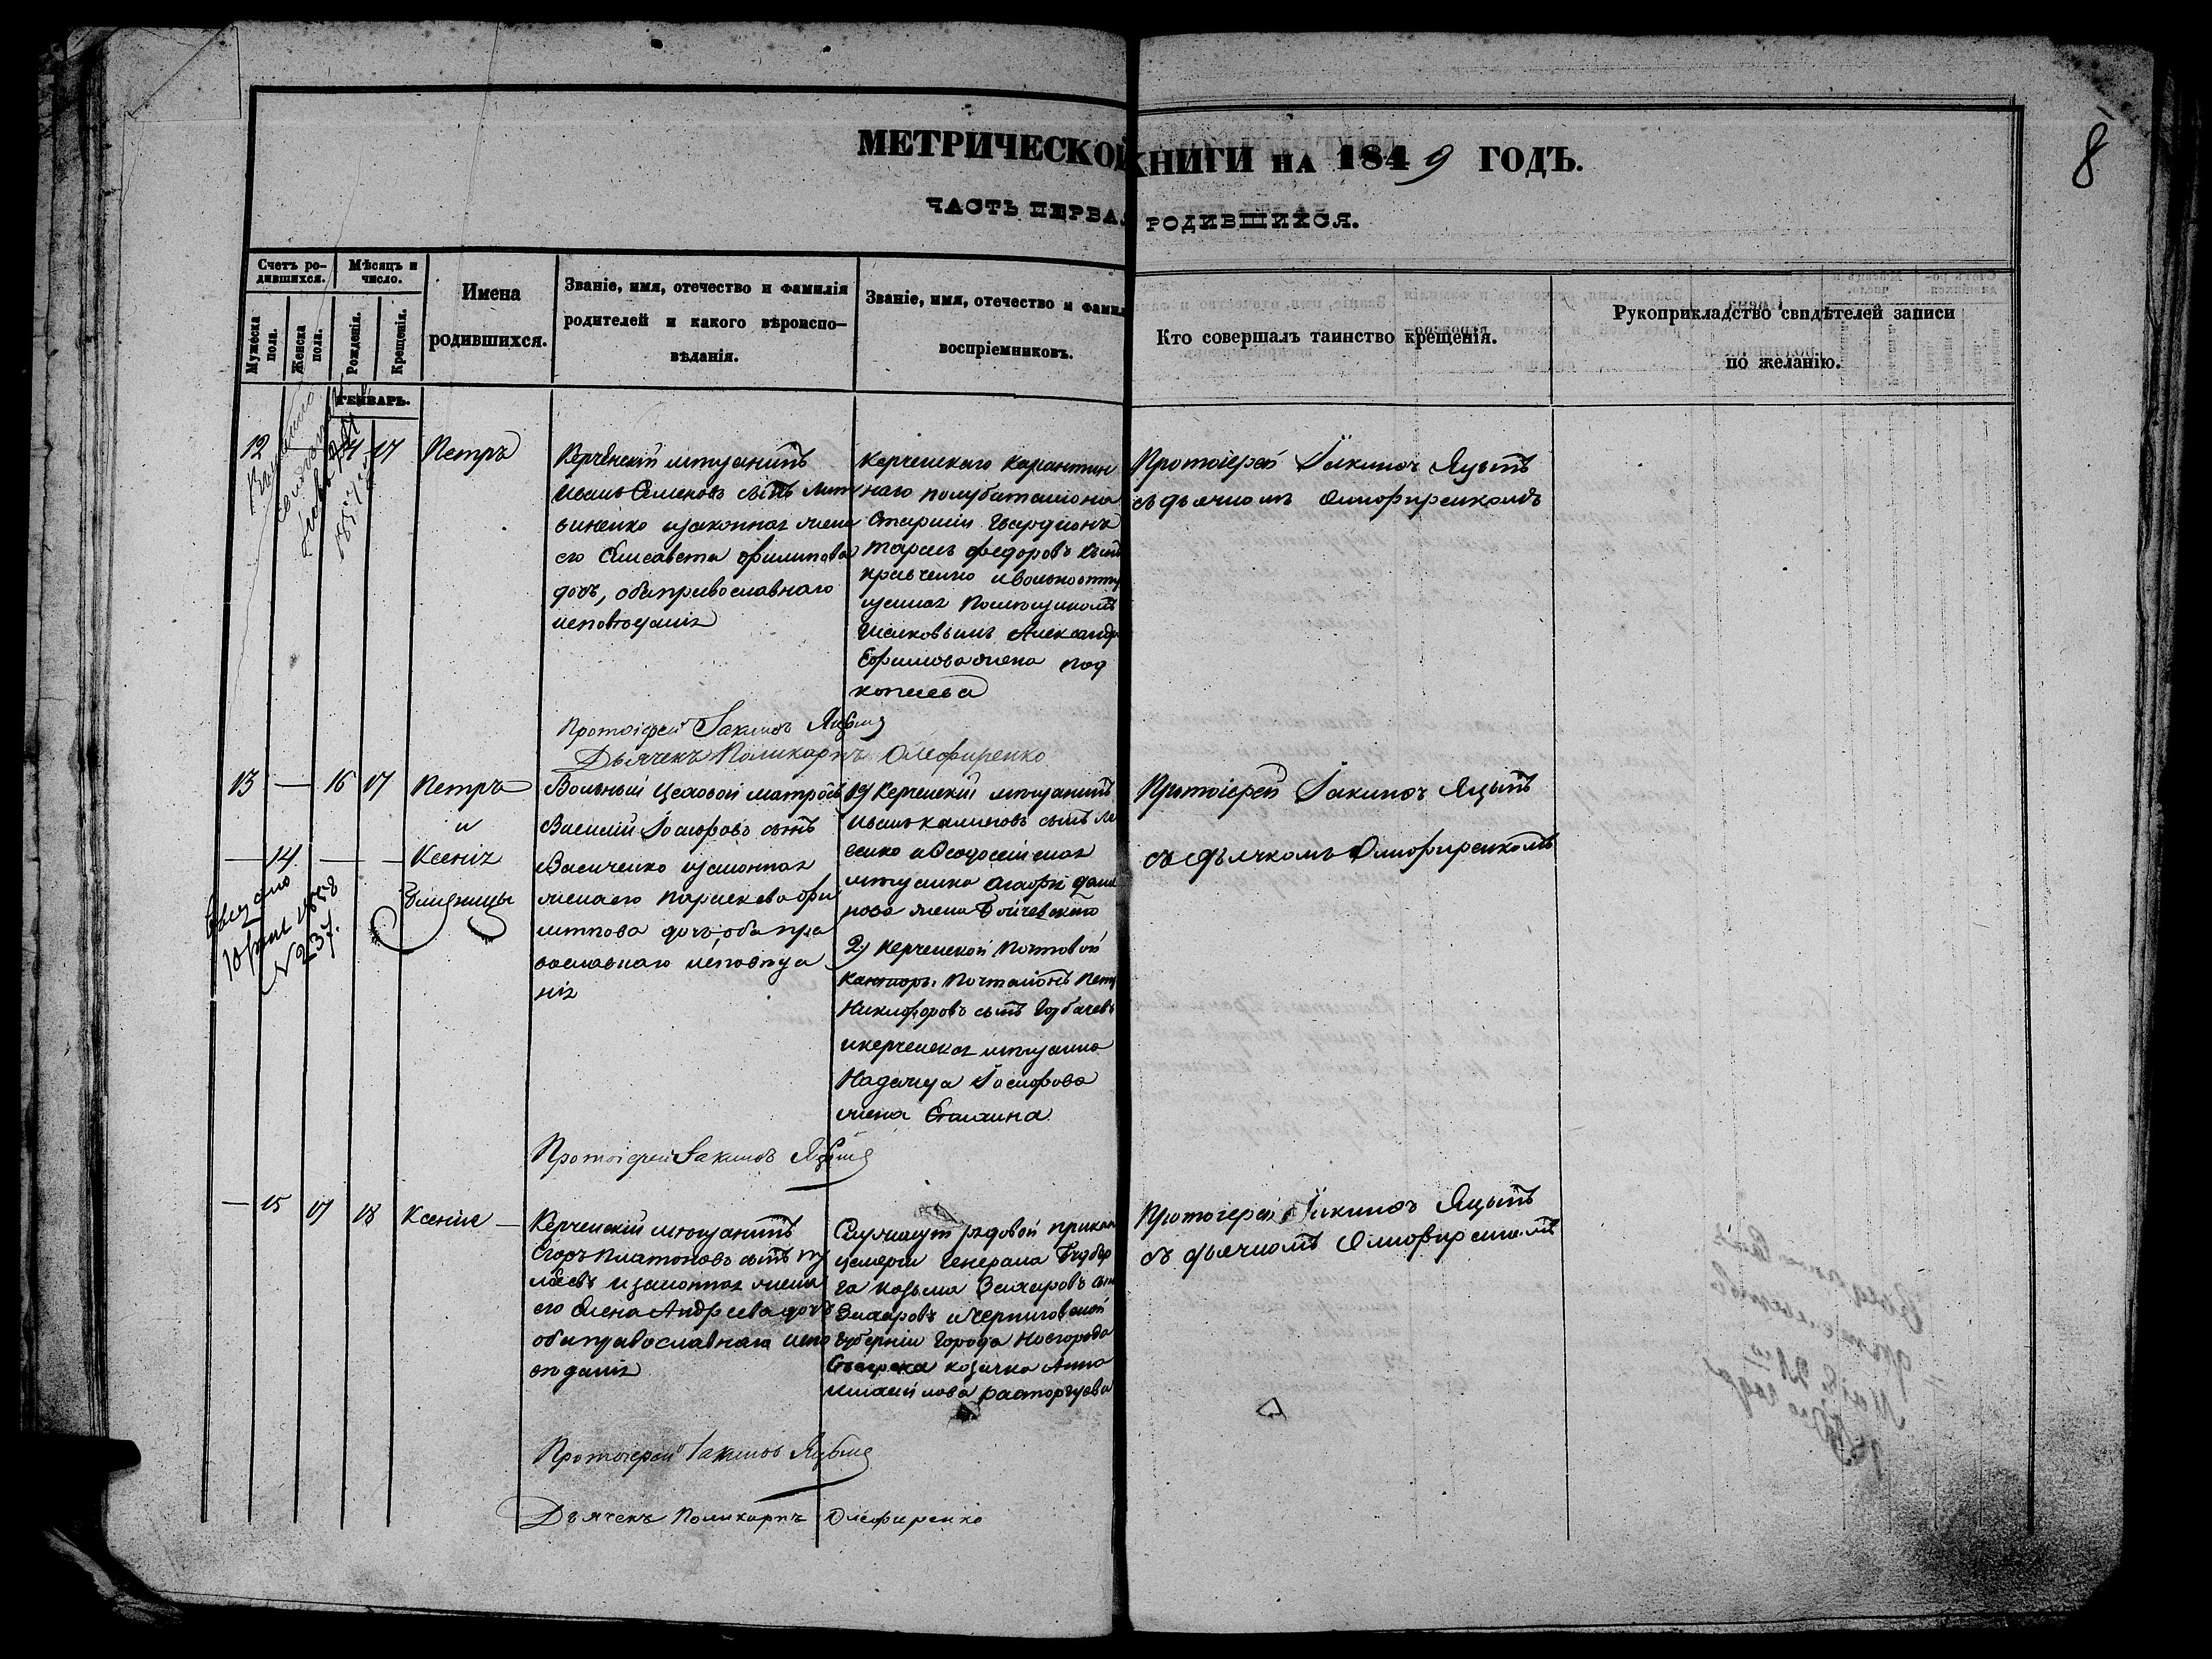 8
МЕТРИЧЕСКОЙ КНИГИ НА 1849 ГОДЪ.
ЧАСТЬ ПЕРВАЯ РОДИВШИХСЯ.
Счетъ ро-
дившихся.
Мѣсяцъ и
число.
Мужеска
пола.
Женска
пола.
Рожденія.
Крещенія.
Имена
родившихся.
Званіе, имя, отечество и фамилія
родителей и какого вѣроиспо-
вѣданія.
Званіе, имя, отечество и фамил
воспріемниковъ.
Кто совершалъ таинство крещенія.
Рукоприкладство свидѣтелей записи
по желанію.
ГЕНВАРЬ.
12 — 14 17 Петръ
Керченскій мѣщанинъ
Иванъ Семеновъ сынъ Лит
виненко изаконная жена
его Елисавета Филипова
дочь, оба православнаго
исповѣданія
Керченскаго Карантин
наго полубаталіона
Старшій Гвардіонъ
Тарасъ Федоровъ сынъ
Кравченко и вольноотпу
щенная Помѣщикомъ
Александр
жена под
копаева
Протоіерей Іакинѳъ Яцынъ
съ дьячкомъ Олиофиренкомъ
Протоіерей Іакинѳъ Яцынъ
Дьячекъ Поликарпъ Олефиренко
13 — 16 17 Петръ
и
— 14 — — Ксенія
близницы
Выдано
1858
N 237.
Вольный Цеховой матросъ
Василій Іосифовъ сынъ
Василенко изаконная
жена его Параскева Фи
липова дочь, оба пра
вославнаго исповѣда
нія
1) Керченскій мѣщанинъ
Иванъ сынъ Ле
венко и Ѳеодосійская
мѣщанка Агафія
нова жена Бойчевскаго
2) Керченской Почтовой
Канторы Почталіонъ Пет
Никифоровъ сынъ Горбачевъ
и керченская мѣщанка
Надежда Іосифова
жена
Протоіерей Іакинѳъ Яцынъ
съ дьячкомъ Олиофиренкомъ
Протоіерей Іакинѳъ Яцынъ
— 15 17 18 Ксенія —
Керченскій мѣщанинъ
Егоръ Платоновъ сынъ
изаконная жена
его Елена Андреева дочь
оба православнаго испо
вѣданія
Служащій рядовой при кан
целяріи Генерала
га Козьма Захаровъ сын
Захаровъ и Черниговской
Губерніи Города Новгорода
Сѣверска козачка Анна
Михайлова Расторгуева
Протоіерей Іакинѳъ Яцынъ
съ дьячкомъ Олиофиренкомъ
Протоіерей Іакинѳъ Яцынъ
Дьячекъ Поликарпъ Олефиренко